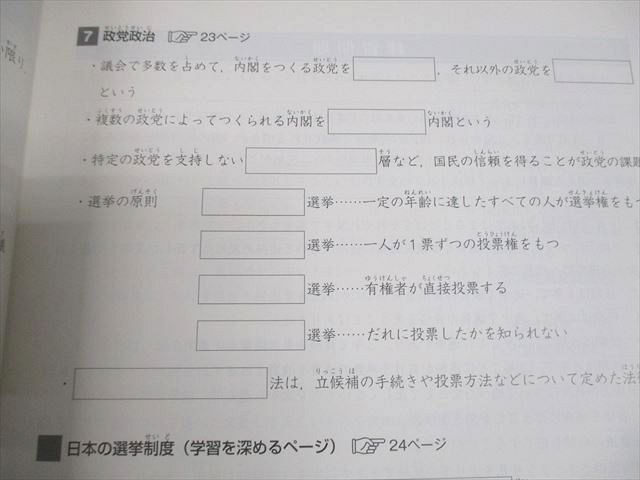 7 政党政治 23ページ
・議会で多数を占めて，内閣をつくる政党を　　　，それ以外の政党を
という
・複数の政党によってつくられる内閣を　　　内閣という
・特定の政党を支持しない　　　層など，国民の信頼を得ることが政党の課題
・選挙の原則　　　選挙……一定の年齢に達したすべての人が選挙権をも
選挙……一人が1票ずつの投票権をもつ
選挙……有権者が直接投票する
選挙……だれに投票したかを知られない
・　　　法は，立候補の手続きや投票方法などについて定めた法
日本の選挙制度（学習を深めるページ） 24ページ